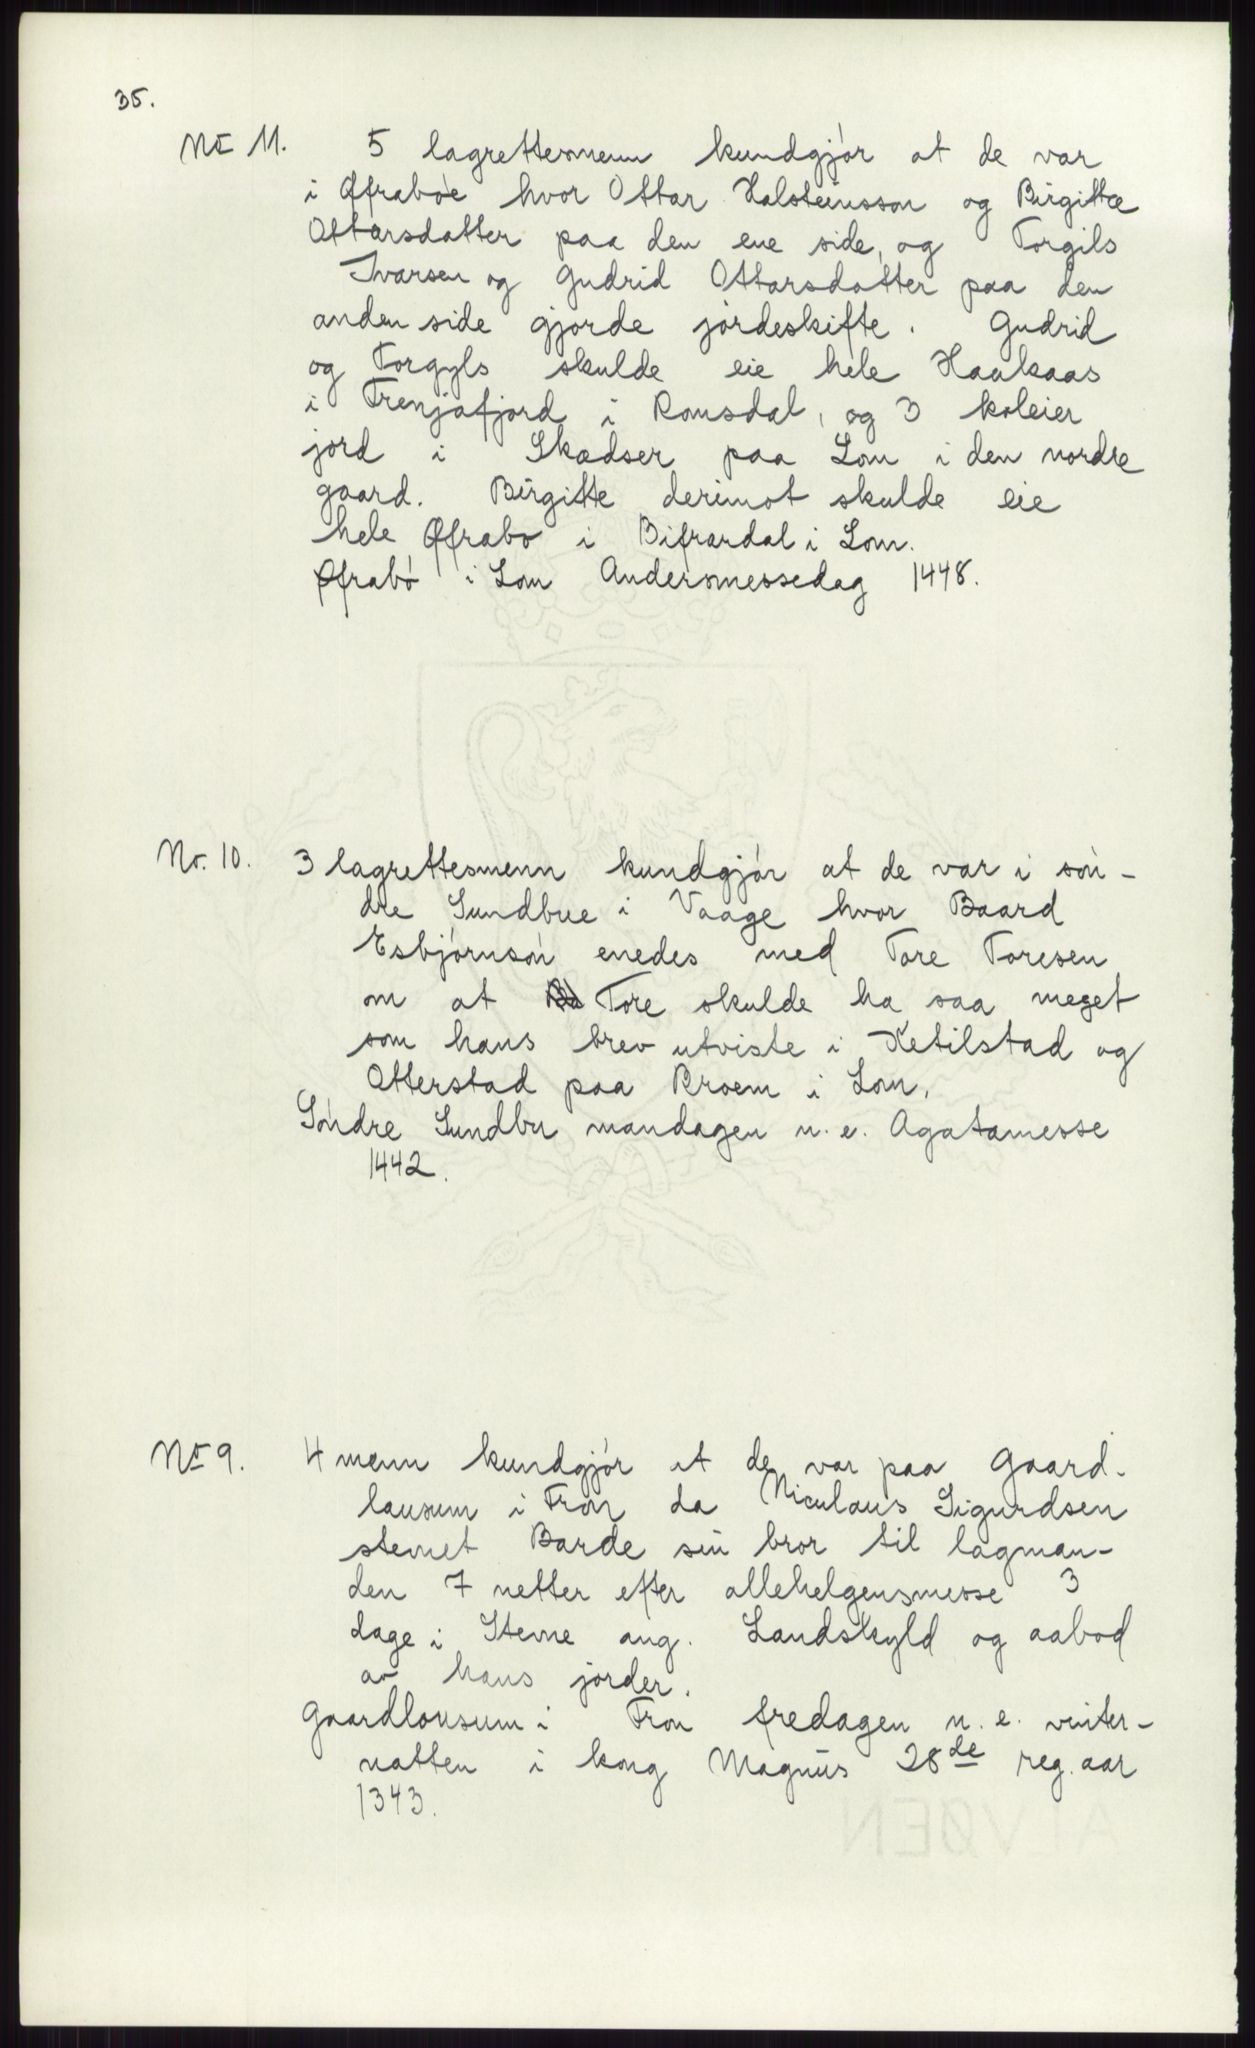 35.
No 11. 5 lagrettesmenn kundgjør at de var
i Øfrabøe hvor Ottar Halsteinsson og Birgitte
Ottarsdatter paa den ene side, og Torgils
Ivarsen og Gudrid Ottarsdatter paa den
anden side gjorde jordeskifte. Gudrid
og Torgyls skulde eie hele Haakaas
i Trenjafjord i Romsdal, og 3 koleier
jord i Skædser paa Lom i den nordre
gaard. Birgitte derimot skulde eie
hele Øfrabo i Bifrardal i Lom.
Øfrabó i Lom Andersmessedag 1448.
No. 10. 3 lagrettesmenn kundgjør at de var i søn-
dre Sundbue i Vaage hvor Baard
Esbjørnsøn enedes med Tore Toresen
om at Tore skulde ha saa meget
som hans brev utviste i Ketilstad og
Otterstad paa Broem i Lom.
Søndre Sundbu mandagen n. e. Agatamesse
1442.
No 9. 4 menn kundgjør at de var paa Gaard-
lausum i Fron da Niculaus Sigurdsen
stevnet Barde sin bror til lagman-
den 7 netter efter allehelgensmesse 3
dage i Stevne ang. Landskyld og aabod
av hans jorder.
Gaardlousum i Fron fredagen n. e. vinter-
natten i kong Magnus 28de reg. aar
1343.
ALVØEN